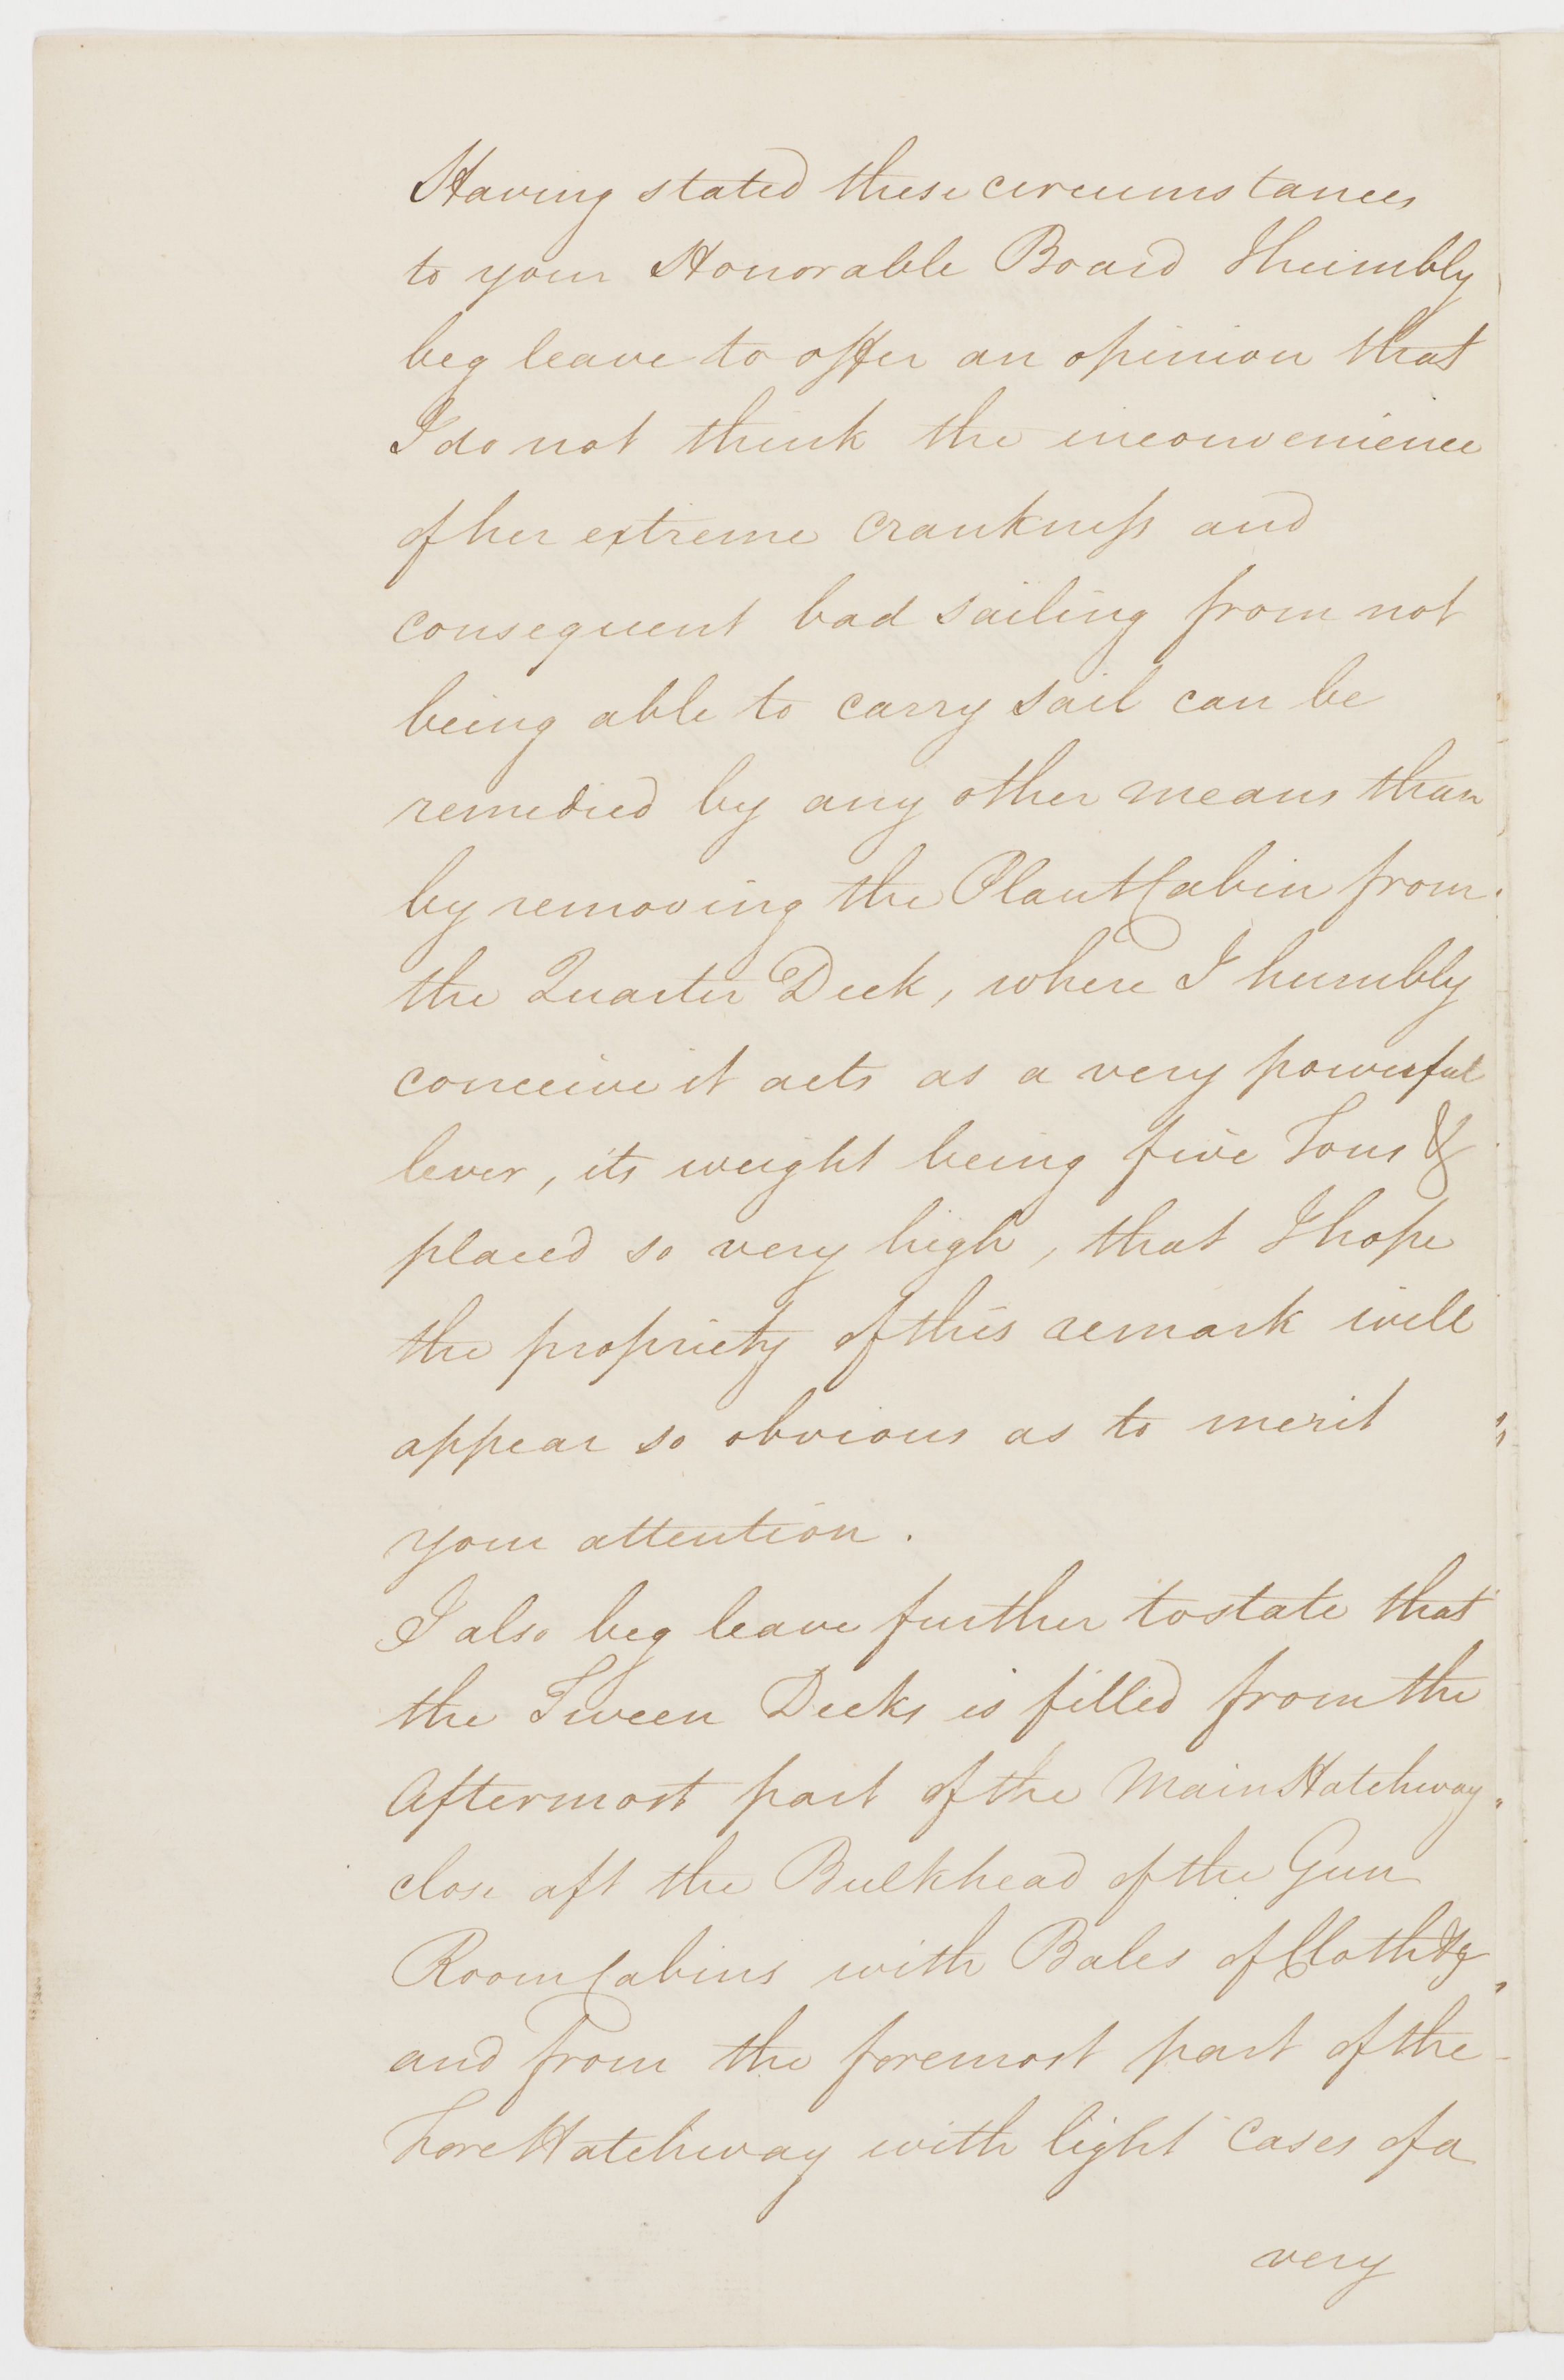 Having stated these circumstances
to your Honorable Board I humbly
beg leave to offer an opinion that
I do not think the inconvenience
of her extreme crankness and
consequent bad sailing from not
being able to carry sail can be
remedied by any other means than
by removing the Plant Cabin from
the Quarter Deck, where I humbly
conceive it acts as a very powerful
lever, its weight being five Tons &
placed so very high, that I hope
the propriety of this remark will
appear so obvious as to merit
your attention.
I also beg leave further to state that
the Tween Decks is filled from the
Aftermost part of the Main Hatchway
close aft the Bulkhead of the Gun
Room Cabins with Bales of Cloth &c
and from the foremost part of the
Fore Hatchway with light Cases of a
very